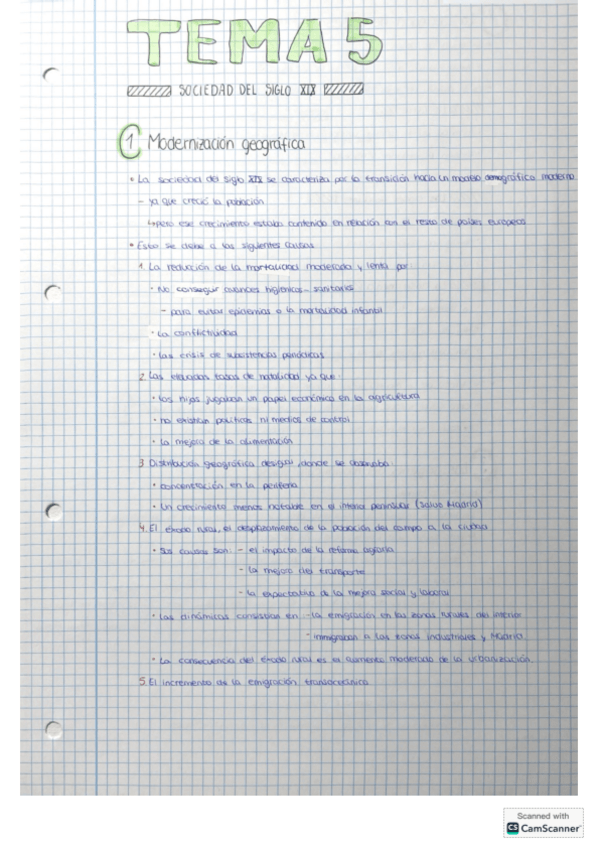 TEMA 5
SOCIEDAD DEL SIGLO XIX
1 Modernización geográfica
• La sociedad del siglo XIX se caracteriza por la transición hacia un modelo demográfico moderno
- ya que creció la población
↳ pero ese crecimiento estaba contenido en relación con el resto de países europeos
• Esto se debe a las siguientes causas
1. La reducción de la mortalidad moderada y lenta por:
• No conseguir avances higienicos - sanitarios
- para evitar epidemias o la mortalidad infantil
• La conflictividad
• Las crisis de subsistencias periódicas
2. Las elevadas tasas de natalidad ya que:
• Los hijos jugaban un papel económico en la agricultura
• no existían políticas ni medios de control
• La mejora de la alimentación
3. Distribución geográfica desigual, donde se observaba:
• concentración en la periferia
• Un crecimiento menos notable en el interior peninsular (salvo Madrid)
4. El éxodo rural, el desplazamiento de la población del campo a la ciudad
• Sus causas son: - el impacto de la reforma agraria
- la mejora del transporte
- la expectativa de la mejora social y laboral
• Las dinámicas consistían en - la emigración en las zonas rurales del interior
- inmigraban a las zonas industriales y Madrid
• La consecuencia del éxodo rural es el aumento moderado de la urbanización
5. El incremento de la emigración transoceánica
Scanned with
CS CamScanner